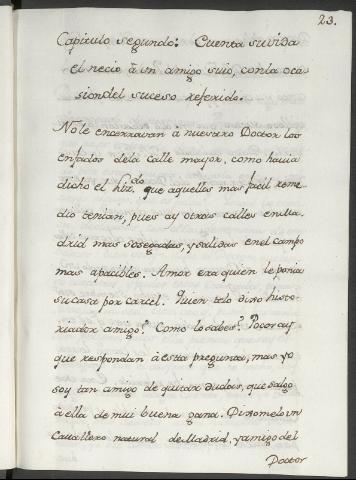 23.
Capitulo segundo: Cuenta su vida
el necio â un amigo suio, con la oca-
sion del suceso referido.
No le encerravan â nuestro Doctor los
enfados de la calle mayor, como havia
dicho el htr.do que aquellos mas facil reme-
dio tenian, pues ay otras calles en Ma-
drid mas sosegadas, y salidas en el campo
mas apacibles. Amor era quien le ponia
su casa por carcel. Quien te lo dijo histo-
riador amigo? Como lo sabes? Pocos ay
que respondan â esta pregunta, mas yo
soy tan amigo de quitar dudas, que salgo
â ella de mui buena gana. Dixomelo un
Cavallero natural de Madrid, y amigo del
Doctor